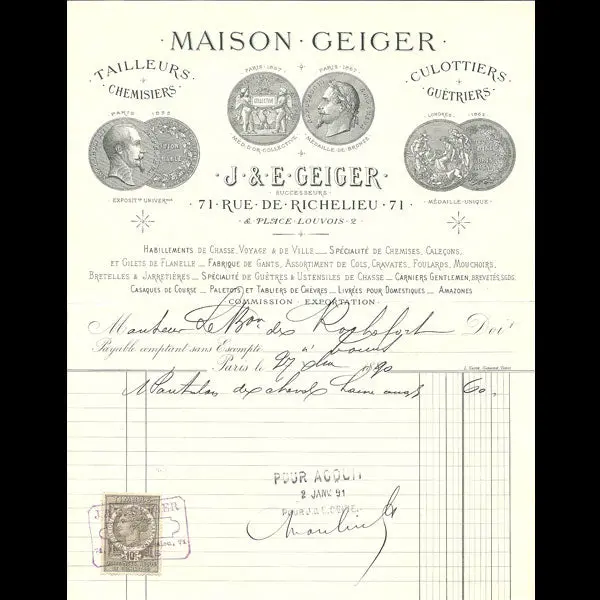 · MAISON · GEIGER ·
· TAILLEURS ·
CHEMISIERS
· CULOTTIERS ·
GUÊTRIERS
PARIS 1855
EXPOSITon UNIVERelle
PARIS · 1867
COLLECTIVE
MED. D'OR · COLLECTIVE
PARIS · 1867
MÉDAILLE · DE · BRONZE
LONDRES 1862
MÉDAILLE · UNIQUE ·
· J · & E · GEIGER ·
SUCCESSEURS
· 71 · RUE · DE · RICHELIEU · 71 ·
· & · PLACE · LOUVOIS · 2 ·
HABILLEMENTS DE CHASSE, VOYAGE & DE VILLE _ SPÉCIALITÉ DE CHEMISES, CALEÇONS,
ET GILETS DE FLANELLE _ FABRIQUE DE GANTS, ASSORTIMENT DE COLS, CRAVATES, FOULARDS, MOUCHOIRS,
BRETELLES & JARRETIÈRES _ SPÉCIALITÉ DE GUÊTRES & USTENSILES DE CHASSE _ CARNIERS GENTLEMEN, BREVETÉS, S.G.D.G.
CASAQUES DE COURSE _ PALETOTS ET TABLIERS DE CHÈVRES _ LIVRÉES POUR DOMESTIQUES _ AMAZONES
COMMISSION - EXPORTATION
Monsieur Le Bon de Rochefort Doit
Payable comptant sans Escompte
Paris le 27 1890
1 Pantalon de cheval 60,
POUR ACQUIT
2 JANV 91
POUR J & E GEIGER
10c